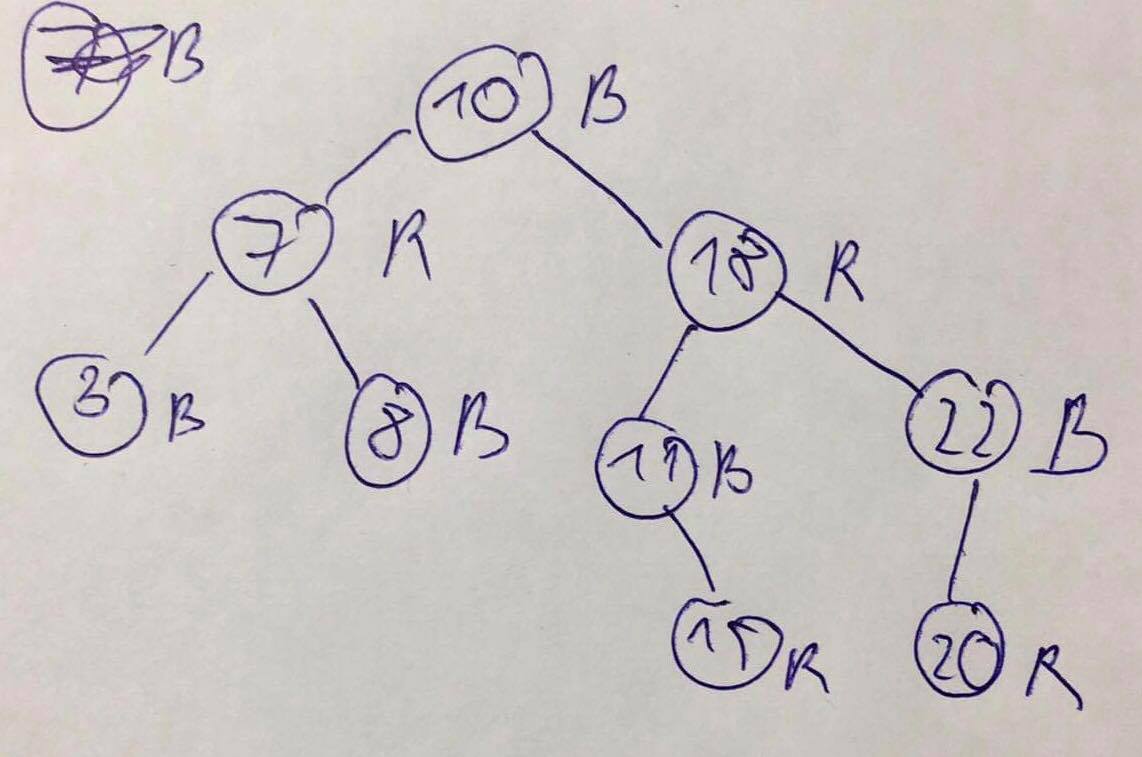 B
10 B
7 R
18 R
3 B
8 B
11 B
22 B
15 R
20 R